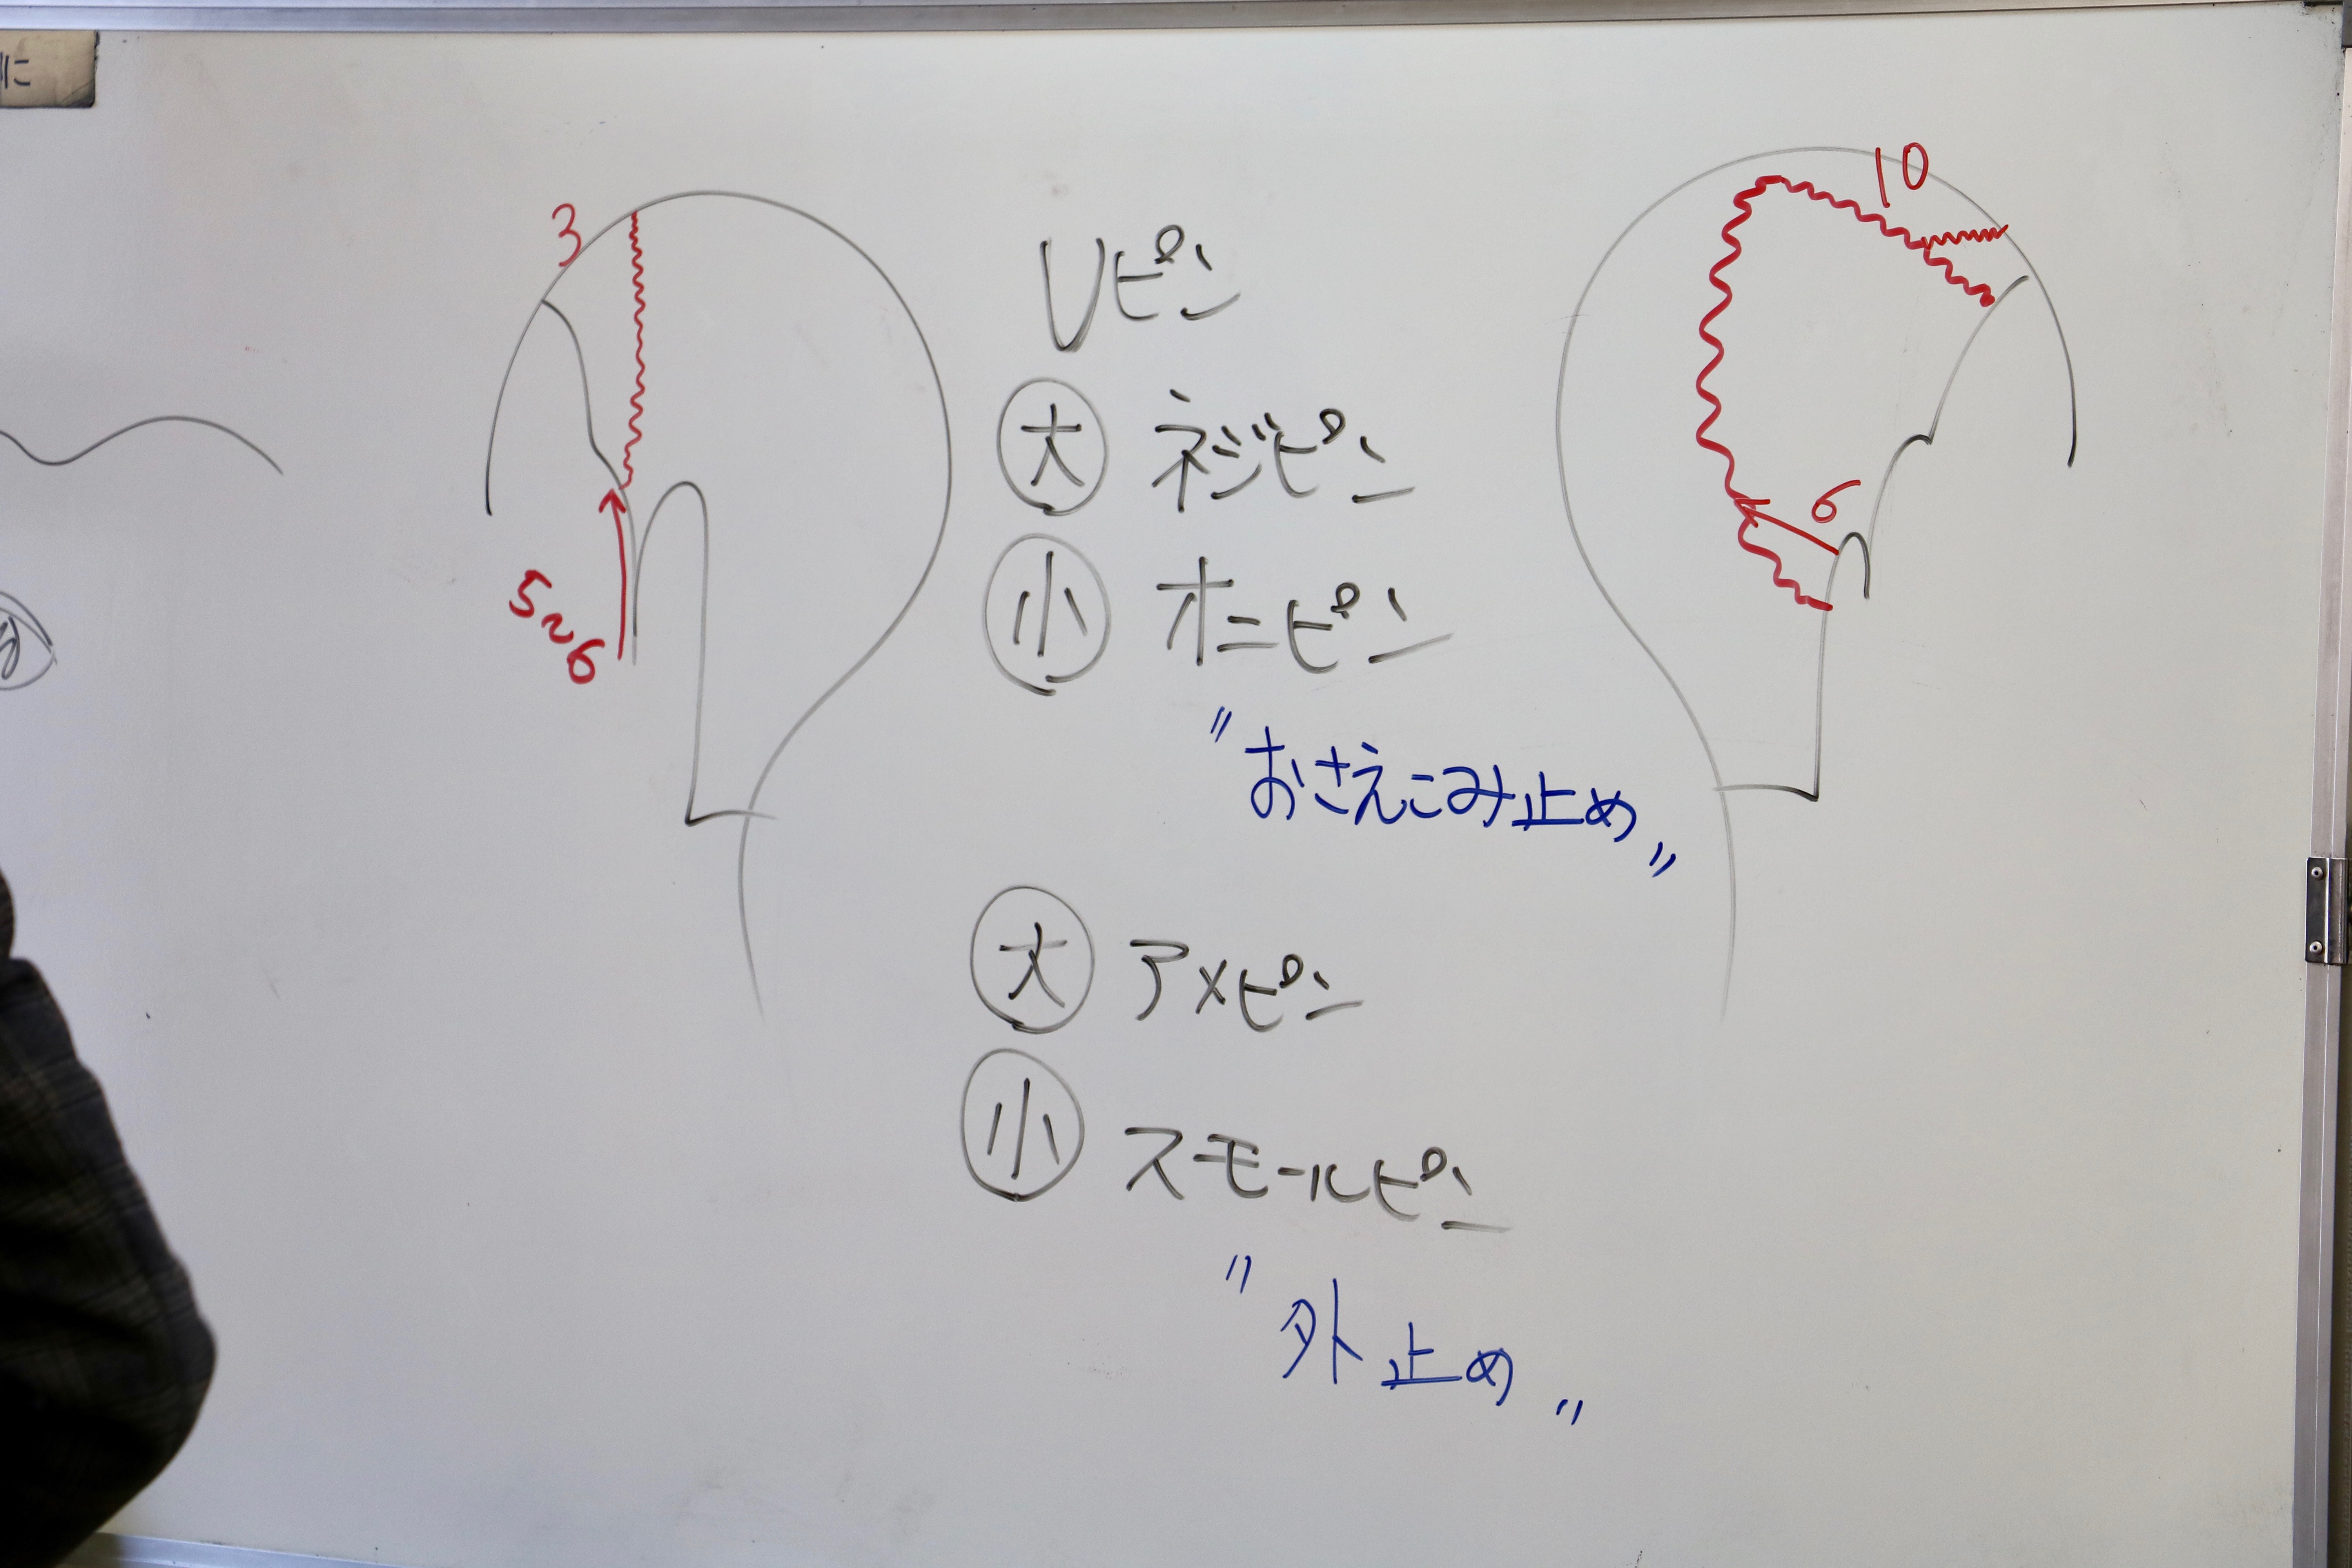 に
3
5~6
Uピン
大 ネジピン
小 オニピン
"おさえこみ止め"
大 アメピン
小 スモールピン
"外止め"
10
6